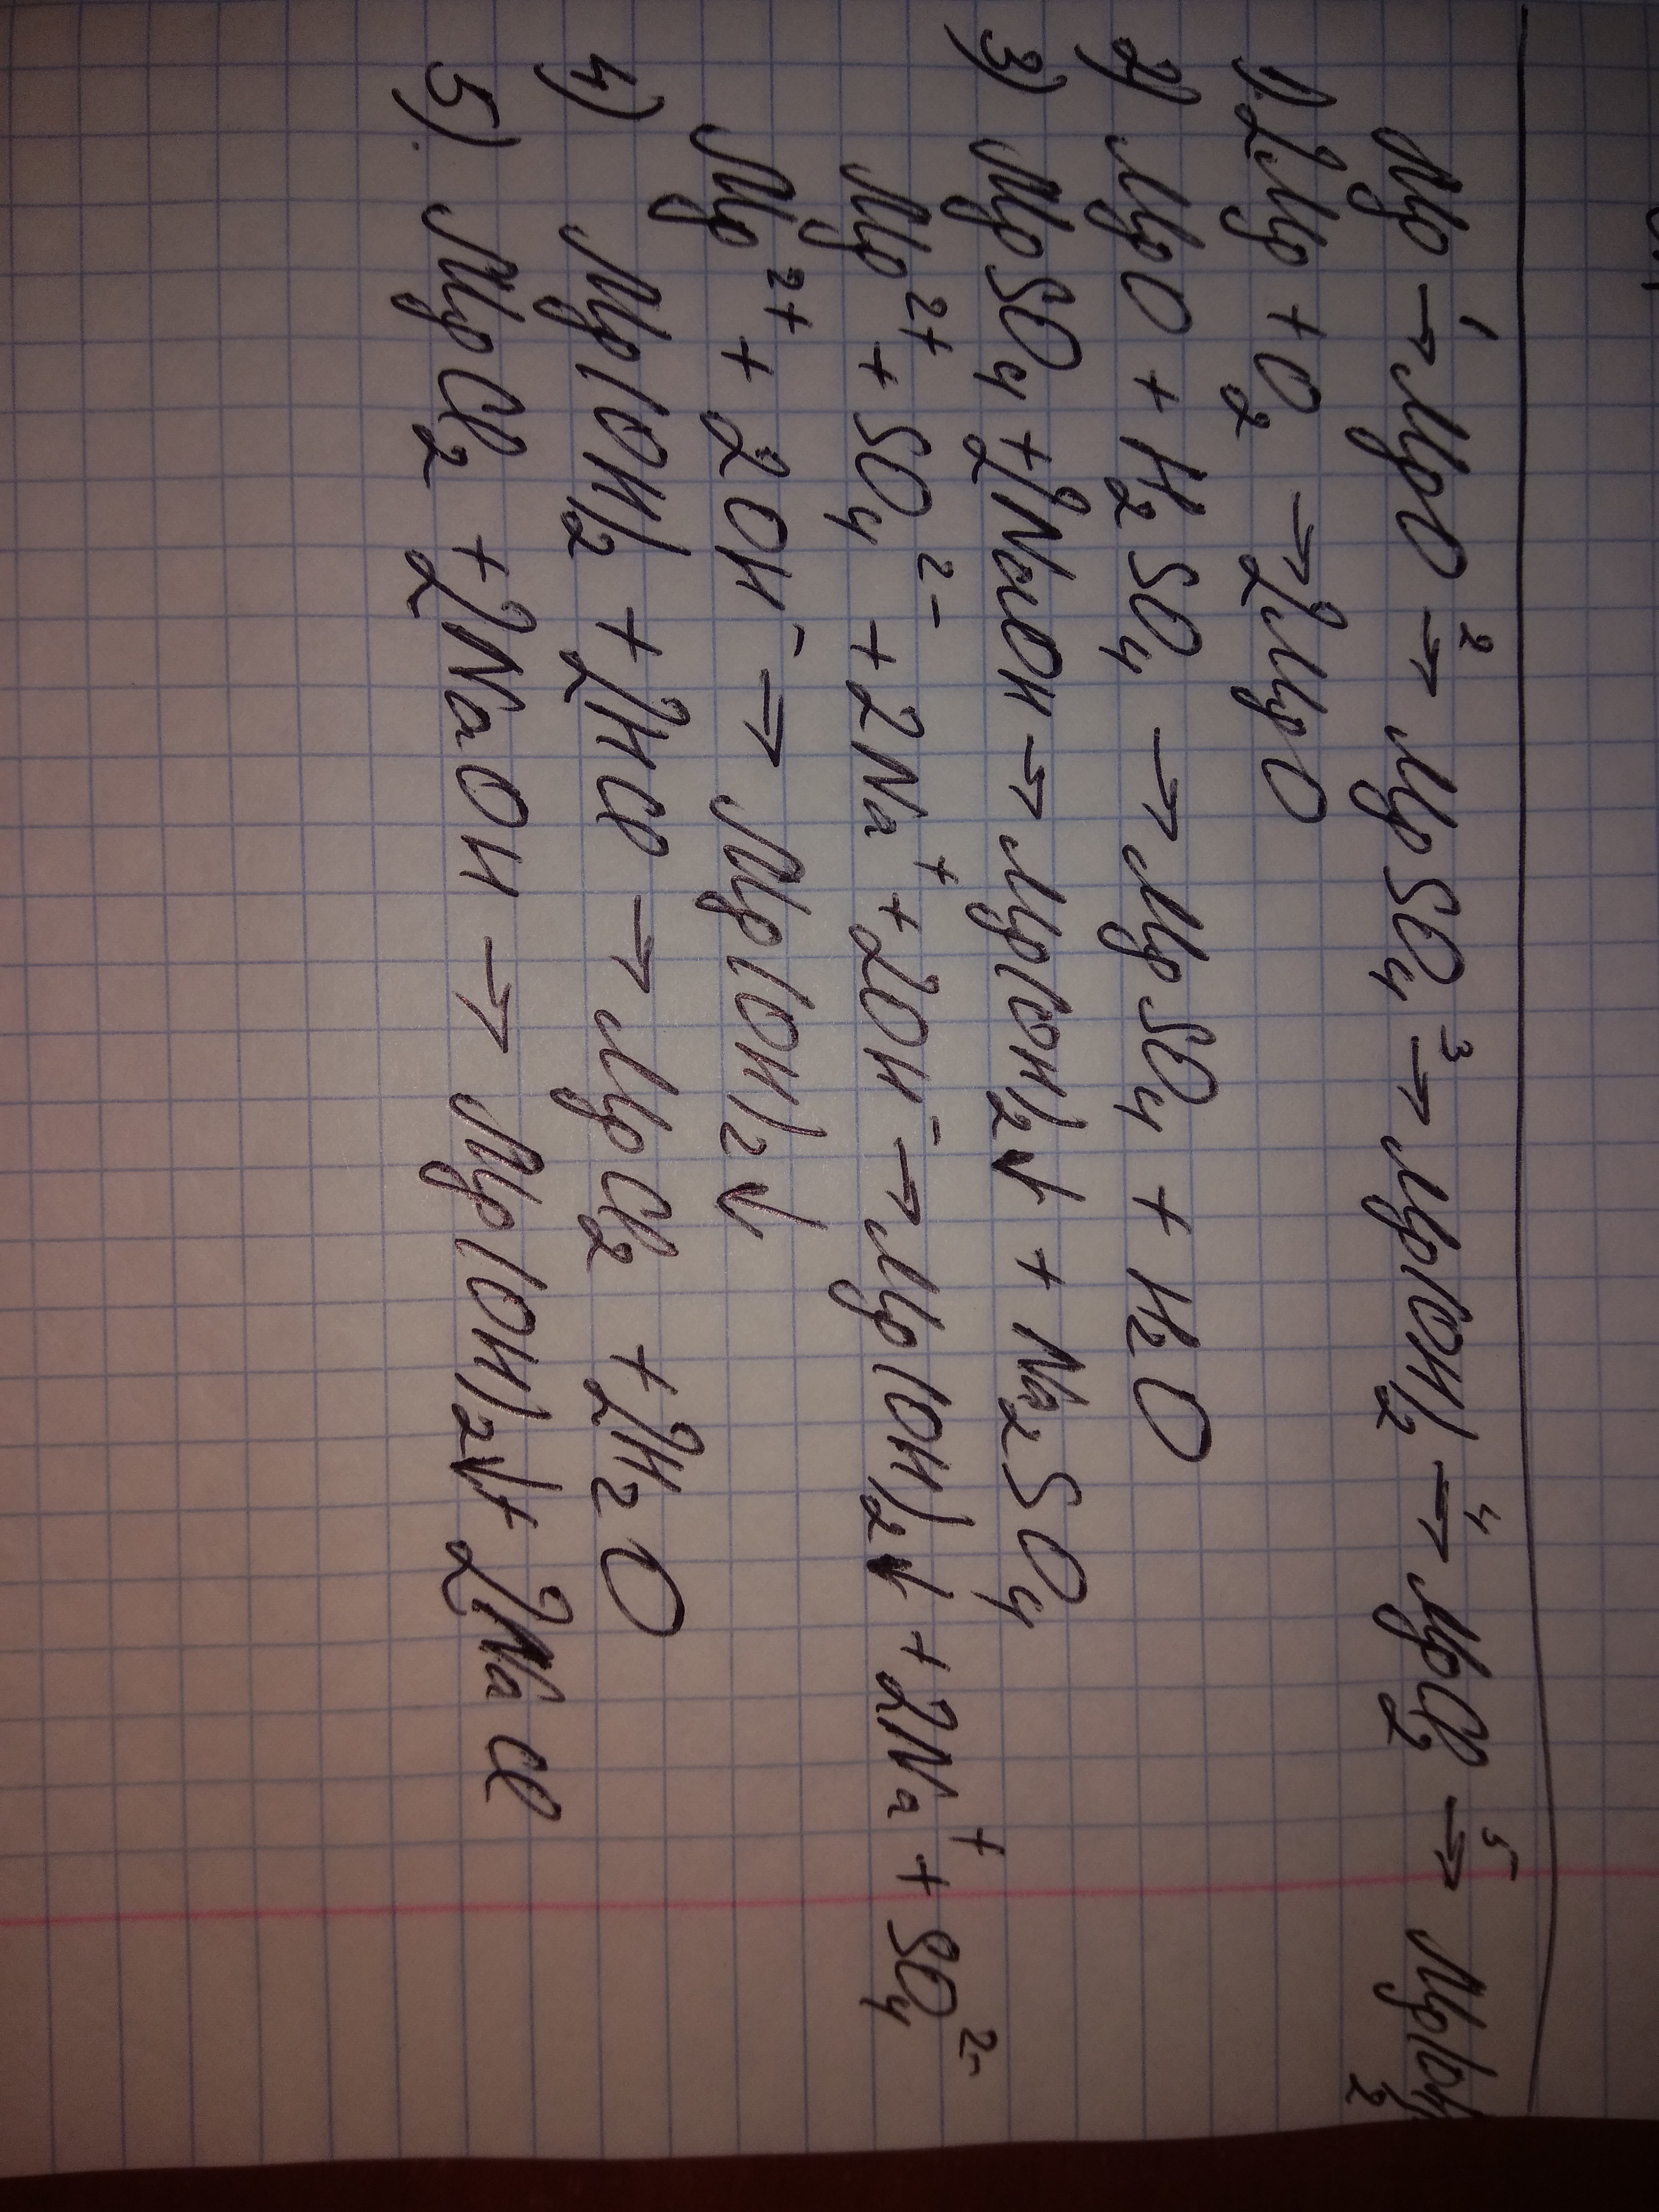 Mg →¹ MgO →² MgSO₄ →³ Mg(OH)₂ →⁴ MgCl₂ →⁵ Mg(OH)₂
1) 2Mg + O₂ → 2MgO
2) MgO + H₂SO₄ → MgSO₄ + H₂O
3) MgSO₄ + 2NaOH → Mg(OH)₂↓ + Na₂SO₄
Mg²⁺ + SO₄²⁻ + 2Na⁺ + 2OH⁻ → Mg(OH)₂↓ + 2Na⁺ + SO₄²⁻
Mg²⁺ + 2OH⁻ → Mg(OH)₂↓
4) Mg(OH)₂ + 2HCl → MgCl₂ + 2H₂O
5). MgCl₂ + 2NaOH → Mg(OH)₂↓ + 2NaCl